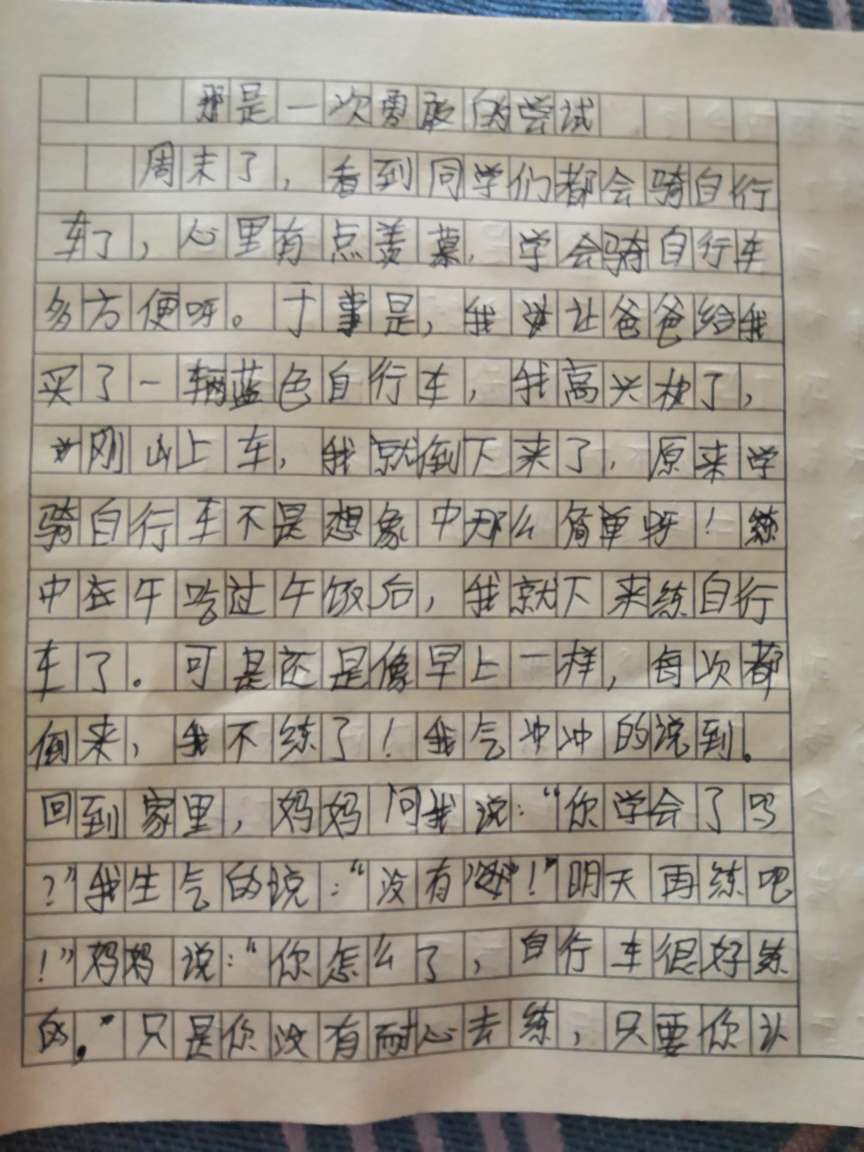 那是一次勇敢的尝试
周末了，看到同学们都会骑自行
车了，心里有点羡慕，学会骑自行车
多方便呀。于事是，我让爸爸给我
买了一辆蓝色自行车，我高兴极了，
刚山上车，我就倒下来了，原来学
骑自行车不是想象中那么简单呀！练
中在午吃过午饭后，我就下来练自行
车了。可是还是像早上一样，每次都
倒来，我不练了！我气冲冲的说到。
回到家里，妈妈问我说：“你学会了吗
？”我生气的说：“没有！”明天再练吧
！”妈妈说：“你怎么了，自行车很好练
的。”只是你没有耐心去练，只要你认